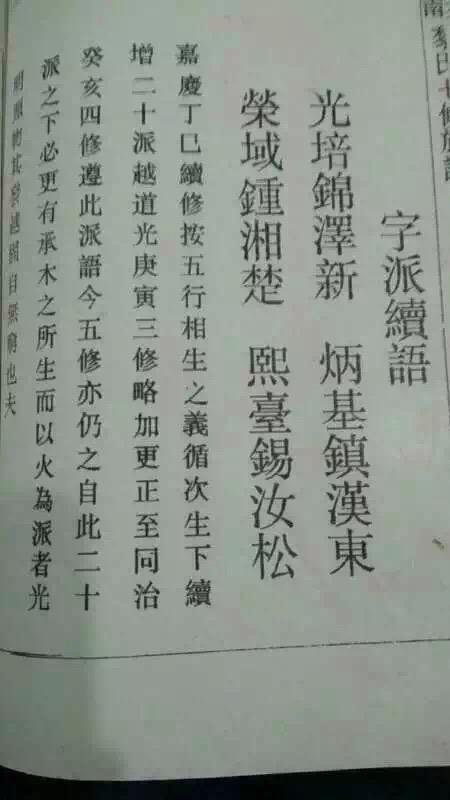 字派續語
光培錦澤新 炳基鎮漢東
榮域鍾湘楚 熙臺錫汝松
嘉慶丁巳續修按五行相生之義循次生下續
增二十派越道光庚寅三修略加更正至同治
癸亥四修遵此派語今五修亦仍之自此二十
派之下必更有承木之所生而以火為派者光
明照物其發越固自無窮也夫